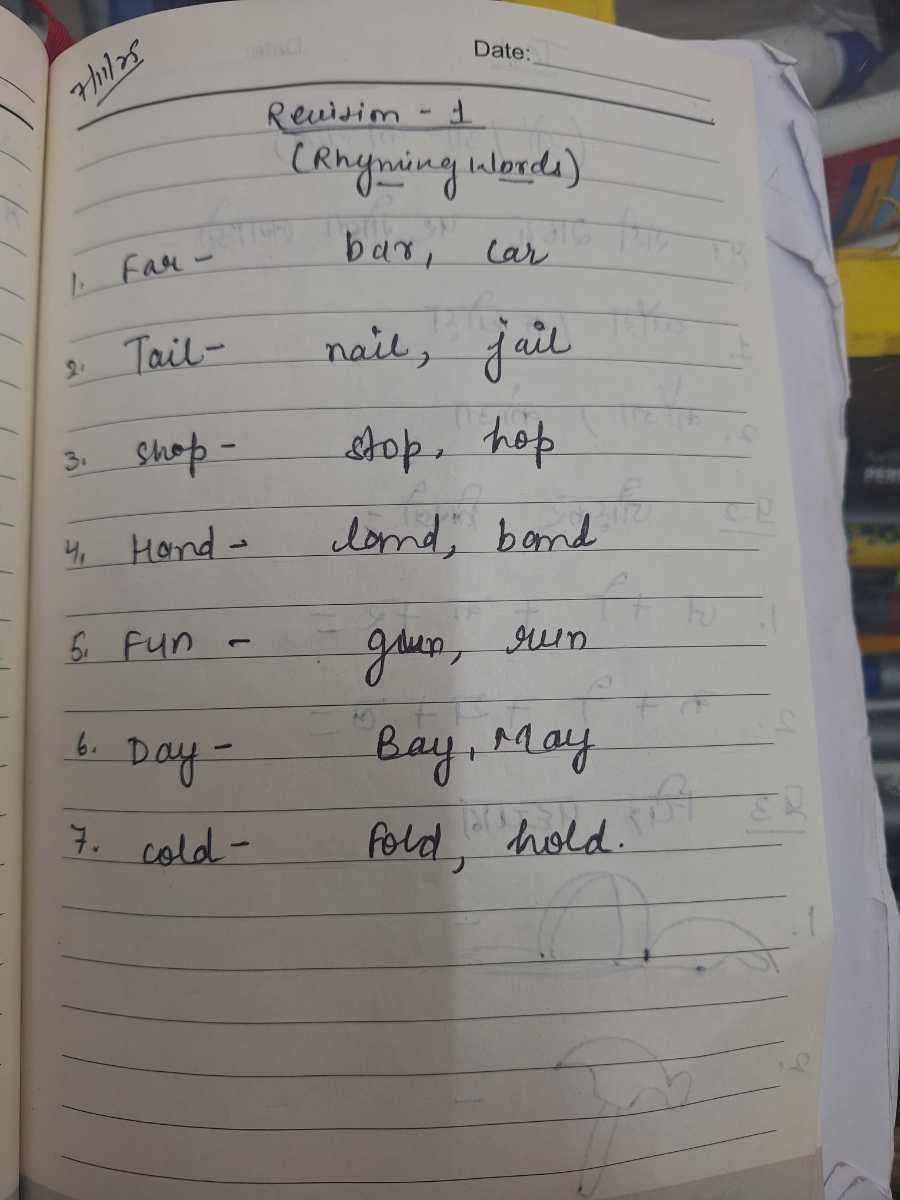 7/11/25
Date:
Revision - 1
(Rhyming Words)
1. Far - bar, car
2. Tail - nail, jail
3. shop - stop, hop
4. Hand - land, band
5. Fun - gun, run
6. Day - Bay, May
7. cold - fold, hold.